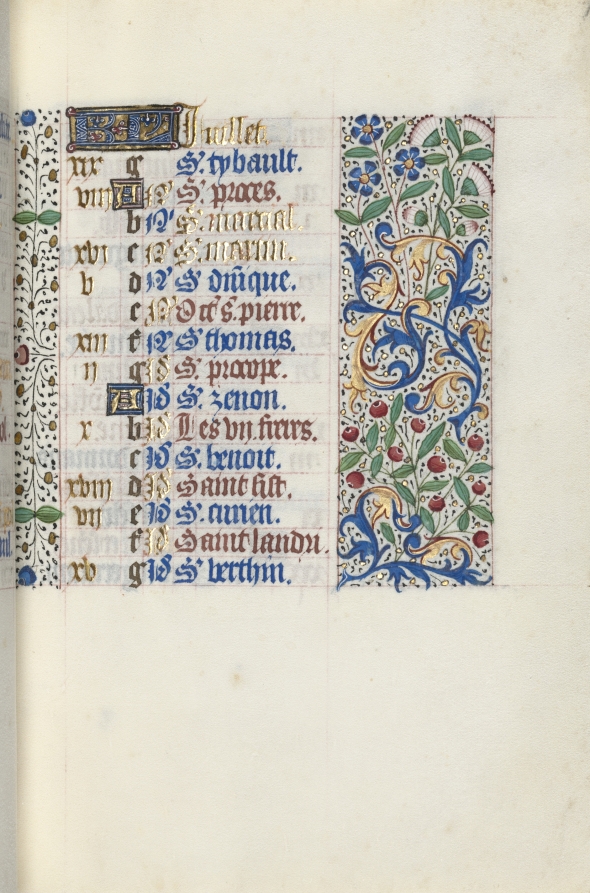 KL Juillet.
xix g S. tybault.
viii A N S. proces.
b N S. marcial.
xvi c N S. marini.
v d N S dnique.
e N Oct s. pierre.
xiii f N S thomas.
ii g Id S. procope.
A Id S. zenon.
x b Id Les vii freres.
c Id S. benoit.
xviii d Id Saint sixt.
vii e Id S.
f Id Saint landri.
xv g Id S berthin.